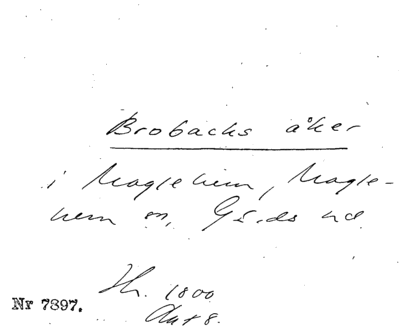 Brobacks åker
i Maglehem, Magle-
hem sn, Gärds hd
Nr 7897.
1800
Akt 8.